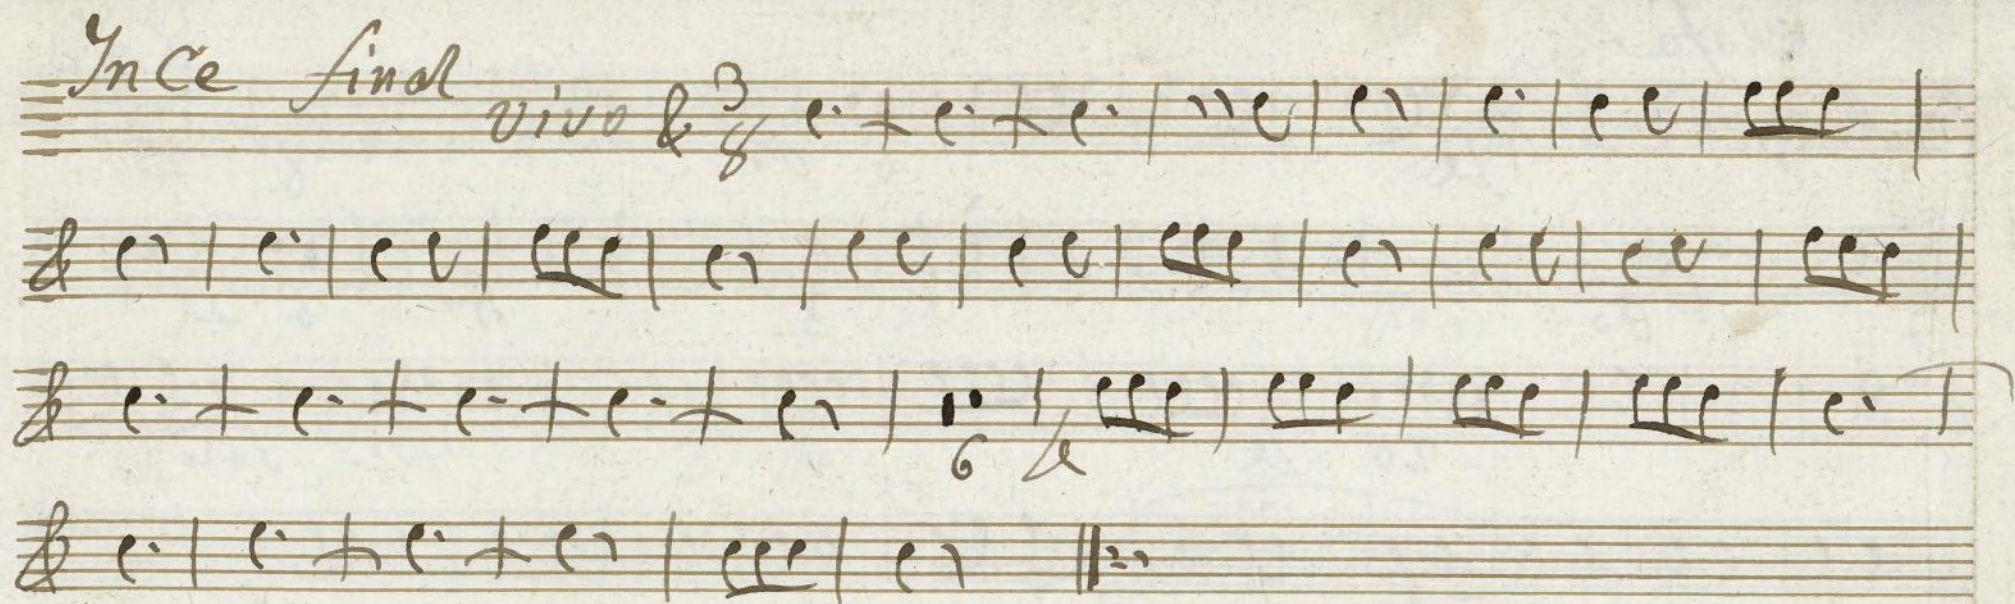 In Ce final
vivo 3
8
6